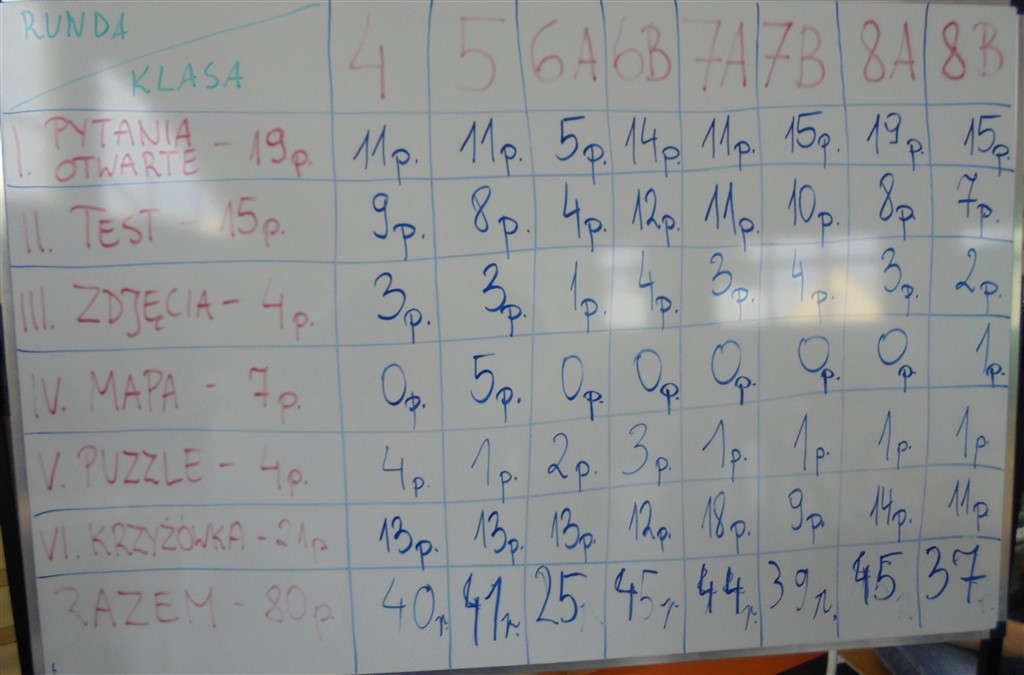 RUNDA
KLASA 4 5 6A 6B 7A 7B 8A 8B
I. PYTANIA OTWARTE - 19p. 11p. 11p. 5p. 14p. 11p. 15p. 19p. 15p.
II. TEST - 15p. 9p. 8p. 4p. 12p. 11p. 10p. 8p. 7p.
III. ZDJĘCIA - 4p. 3p. 3p. 1p. 4p. 3p. 4p. 3p. 2p.
IV. MAPA - 7p. 0p. 5p. 0p. 0p. 0p. 0p. 0p. 1p.
V. PUZZLE - 4p. 4p. 1p. 2p. 3p. 1p. 1p. 1p. 1p
VI. KRZYŻÓWKA - 21p 13p. 13p. 13p. 12p. 18p. 9p. 14p. 11p
RAZEM - 80p. 40p. 41p. 25 45p. 44p. 39p. 45 37